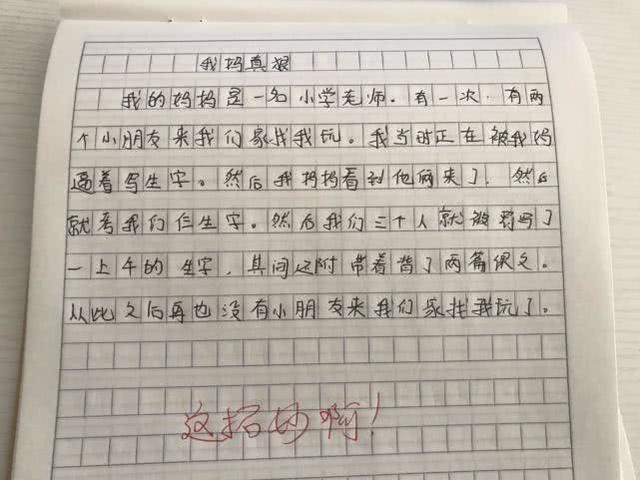 我妈真狠
我的妈妈是一名小学老师。有一次,有两
个小朋友来我们家找我玩。我当时正在被我妈
逼着写生字。然后我妈妈看到他俩来了,然后
就考我们仨生字。然后我们三个人就被罚写了
一上午的生字,其间还附带着背了两篇课文。
从此之后再也没有小朋友来我们家找我玩了。
这招妙啊!